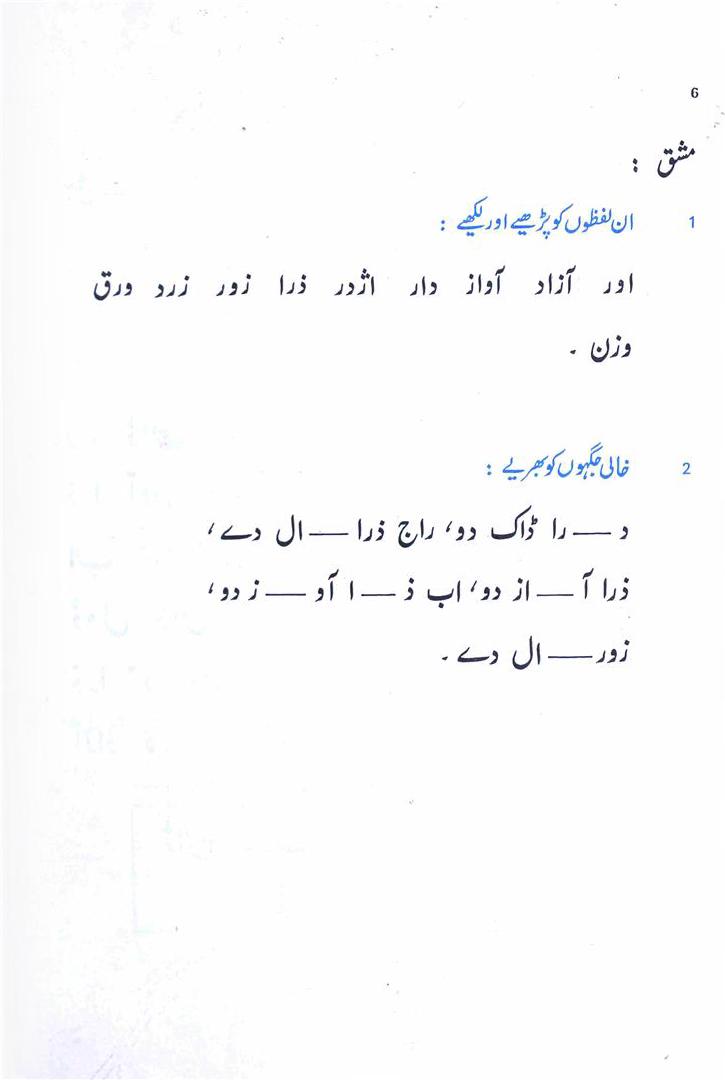 6
مشق :
1 ان لفظوں کو پڑھیے اور لکھیے :
اور آزاد آواز دار اژدر ذرا زور زرد ورق
وزن ۔
2 خالی جگہوں کو بھریے :
د — را ڈاک دو، راج ذرا — ال دے،
ذرا آ — از دو، اب ذ — ا آو — ز دو،
زور — ال دے ۔